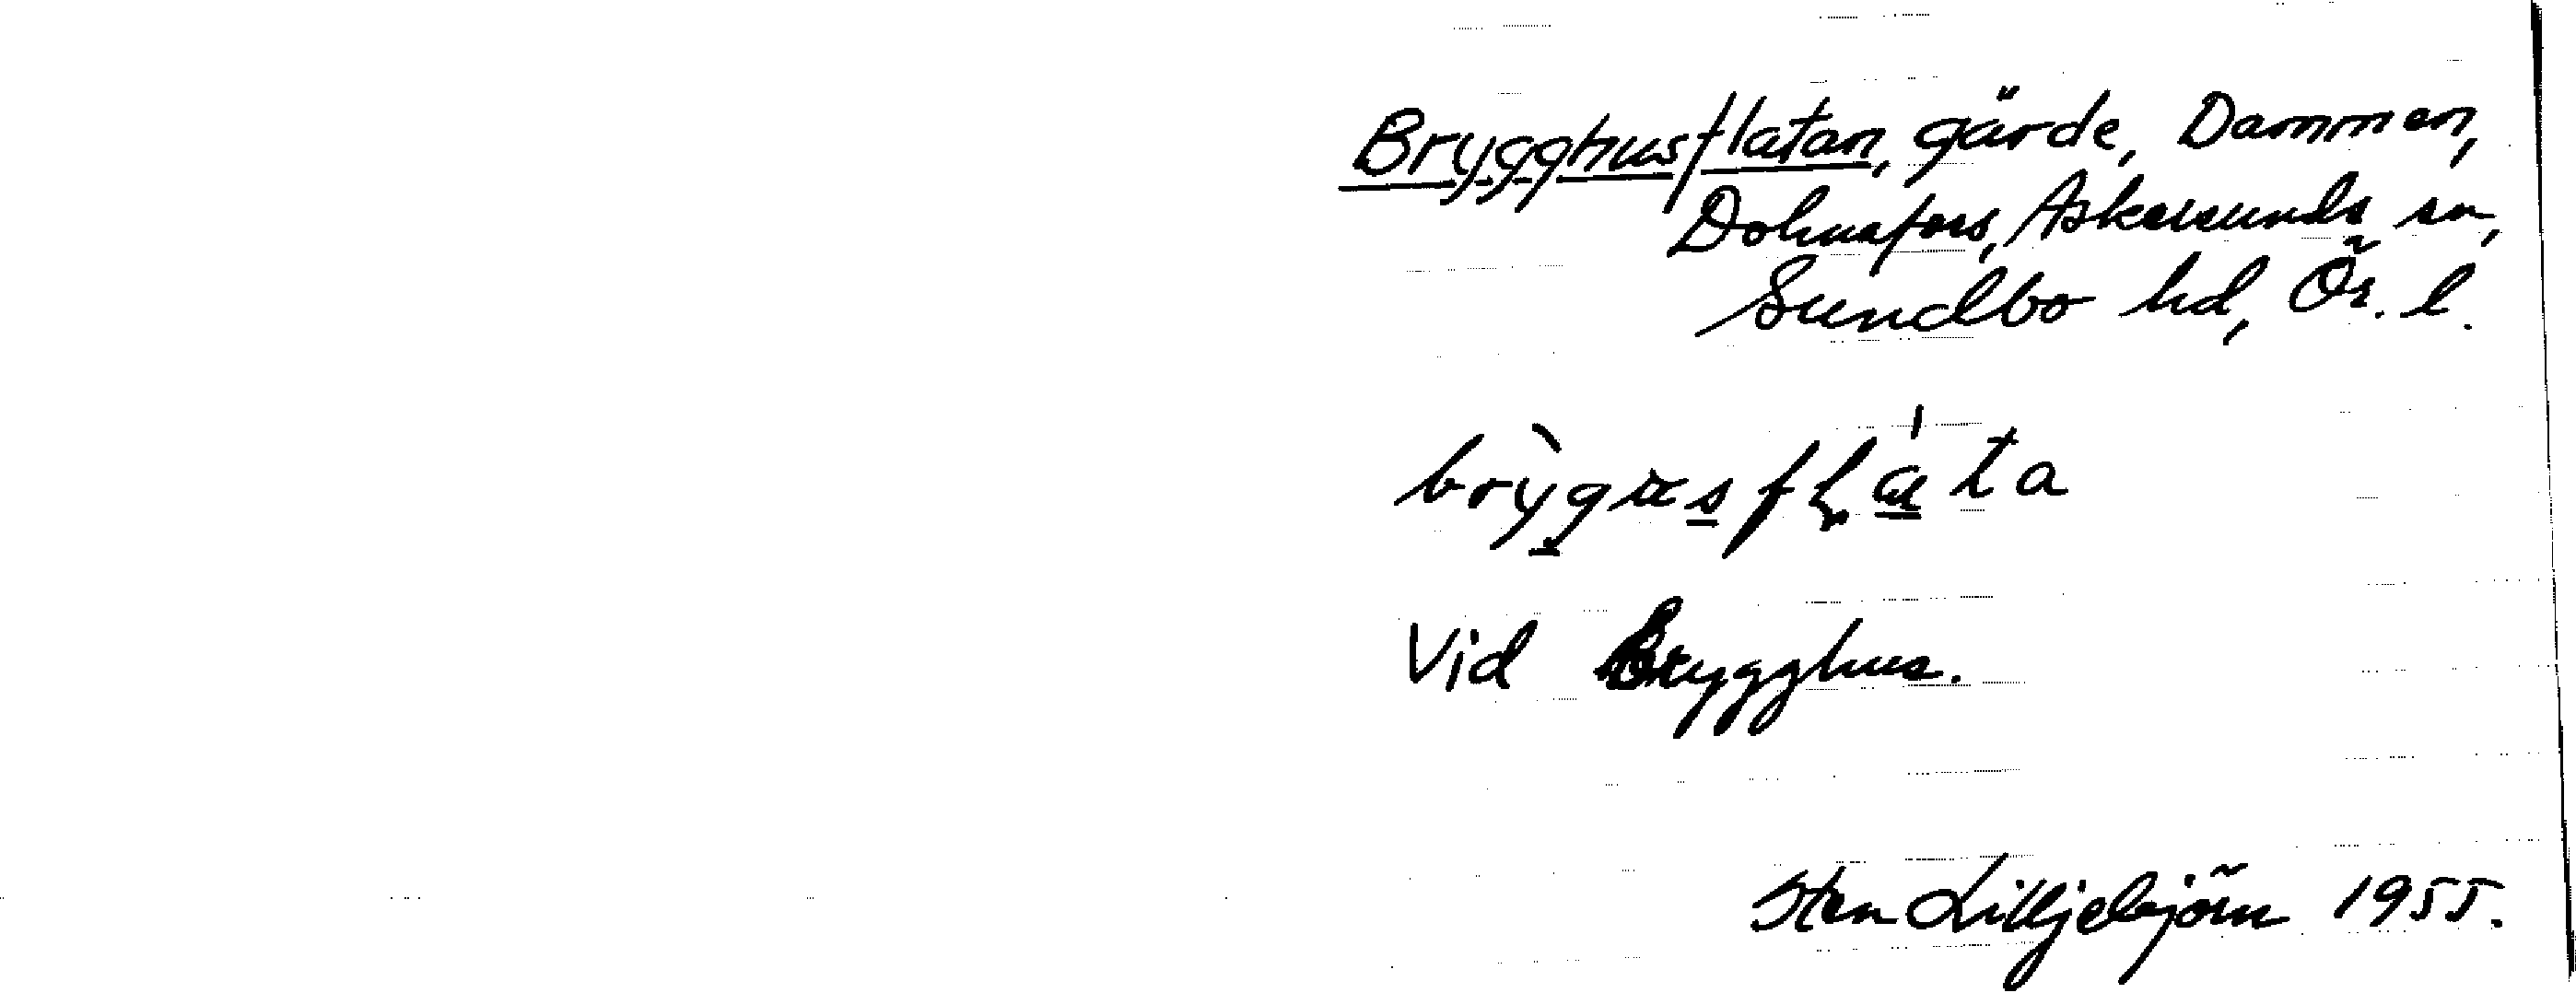 Brygghusflatan, gärde, Dammen,
Dohnafors, Askersunds sn,
Sundbo hd, Ör. l.
brỳgusflàta
Vid Brygghus.
Sten Lilljebjörn 1955.